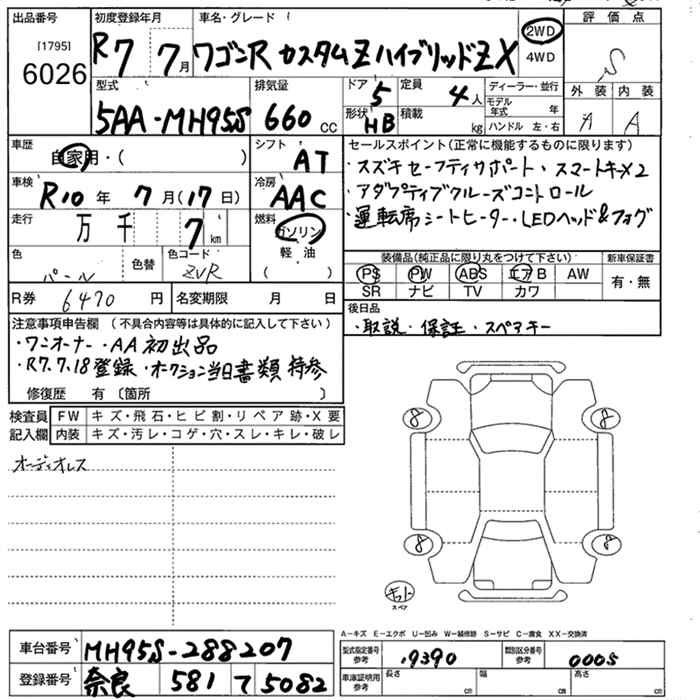 出品番号 初度登録年月 車名・グレード 評価点
[1795] R7 7月 ワゴンR カスタムZ ハイブリッドZX 2WD S
6026 4WD
型式 排気量 ドア 定員 ディーラー・並行 外装 内装
5AA-MH95S 660cc 5 4人 モデル年式 年 A A
形状 HB 積載 kg ハンドル 左・右
車歴 自家用・( ) シフト AT セールスポイント(正常に機能するものに限ります)
・スズキセーフティサポート・スマートキーX2
車検 R10年 7月(17日) 冷房 AAC ・アダプティブクルーズコントロール
走行 万 千 7km 燃料 ガソリン ・運転席シートヒーター・LEDヘッド&フォグ
軽・油
( )
色 パール 色替 色コード ZVR 装備品(純正品に限り丸をつけて下さい) 新車保証書
PS PW ABS エアB AW 有・無
SR ナビ TV カワ
R券 6470円 名変期限 月 日 後日品
・取説・保証・スペアキー
注意事項申告欄 (不具合内容等は具体的に記入して下さい)
・ワンオーナー・AA初出品
・R7.7.18登録・オークション当日書類持参
修復歴 有〔箇所 〕
検査員 FW キズ・飛石・ヒビ割・リペア跡・X要
記入欄 内装 キズ・汚レ・コゲ・穴・スレ・キレ・破レ
オーディオレス
8 8
8 8
スペア
A-キズ E-エクボ U-凹み W-補修跡 S-サビ C-腐食 XX-交換済
車台番号 MH95S-288207 型式指定番号 参考 19390 類別区分番号 参考 0005
登録番号 奈良 581 て 5082 車庫証明用 参考 長さ cm 幅 cm 高さ cm